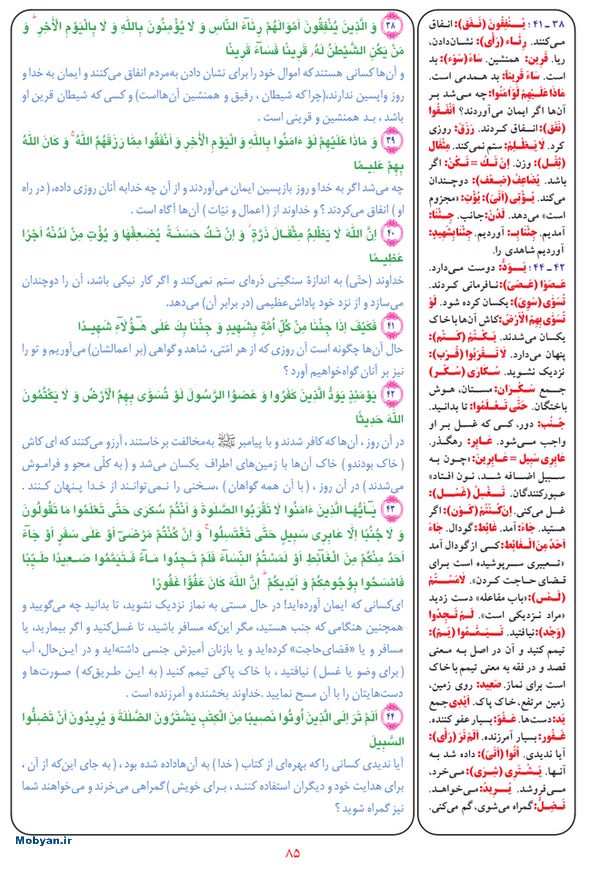 ۳۸ - ۴۱ : یُنْفِقُونَ (نَفَق): انفاق
می‌کنند. رِئاء (رَأی): نشان‌دادن،
ریا. قَرین: همنشین. ساءَ (سَوَء): بد
است. ساءَ قَریناً: بد همدمی است.
ماذا عَلَیْهِمْ لَوْ آمَنُوا: چه می‌شد بر
آن‌ها اگر ایمان می‌آوردند؟ اَنْفَقُوا
(نَفَق): انفاق کردند. رَزَقَ: روزی
کرد. لا یَظْلِمُ: ستم نمی‌کند. مِثْقال
(ثِقْل): وزن. اِنْ تَكُ = تَكُنْ: اگر
باشد. یُضاعِفُ (ضِعْف): دوچندان
می‌کند. یُؤْتی (اَتَیَ): یُؤْتِ: «مجزوم
است» می‌دهد. لَدُنْ: جانب. جِئْنا:
آمدیم. جِئْنابِـ: آوردیم. جِئْنابِشَهیدٍ:
آوردیم شاهدی را.
۴۲ - ۴۴ : یَوَدُّ: دوست می‌دارد.
عَصَوْا (عَصَیَ): نافرمانی کردند.
تُسَوّی (سَوِیَ): یکسان کرده شود. لَوْ
تُسَوّی بِهِمُ الْاَرْضُ: کاش آن‌ها با خاک
یکسان می‌شدند. یَكْتُمُ (كَتَمَ):
پنهان می‌دارد. لا تَقْرَبُوا (قَرَبَ):
نزدیک نشوید. سُكاری (سُكْر)
جمع سَكْران: مستان، هوش
باختگان. حَتّی تَعْلَمُوا: تا بدانید.
جُنُب: دور، کسی که غسل بر او
واجب می‌شود. عابِر: رهگذر.
عابِری سَبیل = عابِرینَ: «چون به
سبیل اضافه شد، نون افتاد»
عبورکنندگان. تَغْتَسِلُ (غَسَلَ):
غسل می‌کنی. اِنْ كُنْتُمْ (كَوْن): اگر
هستید. جاءَ: آمد. غائِط: گودال. جاءَ
اَحَدٌ مِنَ الْغائِط: کسی از گودال آمد
«تعبیری سرپوشیده است برای
قضای حاجت کردن». لامَسْتُمْ
(لَمْس): «باب مفاعله» دست زدید
«مراد نزدیکی است». لَمْ تَجِدُوا
(وَجَد): نیافتید. تَیَمَّمُوا (یَمّ):
تیمم کنید و آن در اصل به معنی
قصد و در فقه به معنی تیمم با خاک
است برای نماز. صَعید: روی زمین،
زمین مرتفع، خاک پاک. اَیْدی جمع
یَد: دست‌ها. عَفُوّ: بسیار عفو کننده.
غَفُور: بسیار آمرزنده. اَلَمْ تَرَ (رَأی):
آیا ندیدی. اُتُوا (اَتَیَ): داده شد به
آنها. یَشْتَری (شِری): می‌خرد،
می‌فروشد. یُرید: می‌خواهد.
تَضِلُّ: گمراه می‌شوی، گم می‌کنی.
۳۸ وَ الَّذینَ یُنْفِقُونَ اَمْوالَهُمْ رِئاءَ النّاسِ وَ لا یُؤْمِنُونَ بِاللهِ وَ لا بِالْیَوْمِ الْاخِرِ وَ
مَنْ یَكُنِ الشَّیْطٰنُ لَهُ قَرینًا فَساءَ قَرینًا
و آن‌ها کسانی هستند که اموال خود را برای نشان دادن به‌مردم انفاق می‌کنند و ایمان به خدا و
روز واپسین ندارند،(چرا که شیطان ، رفیق و همنشین آن‌هااست) و کسی که شیطان قرین او
باشد ، بد همنشین و قرینی است .
۳۹ وَ ماذا عَلَیْهِمْ لَوْ ءامَنُوا بِاللهِ وَ الْیَوْمِ الْاخِرِ وَ اَنْفَقُوا مِمّا رَزَقَهُمُ اللهُ وَ كانَ اللهُ
بِهِمْ عَلیمًا
چه می‌شد اگر به خدا و روز بازپسین ایمان می‌آوردند و از آن چه خدابه آنان روزی داده، (در راه
او) انفاق می‌کردند ؟ و خداوند از ( اعمال و نیّات ) آن‌ها آگاه است .
۴۰ اِنَّ اللهَ لا یَظْلِمُ مِثْقالَ ذَرَّةٍ وَ اِنْ تَكُ حَسَنَةً یُضٰعِفْها وَ یُؤْتِ مِنْ لَدُنْهُ اَجْرًا
عَظیمًا
خداوند (حتّی) به اندازهٔ سنگینی ذره‌ای ستم نمی‌کند و اگر کار نیکی باشد، آن را دوچندان
می‌سازد و از نزد خود پاداش‌عظیمی (در برابر آن) می‌دهد.
۴۱ فَكَیْفَ اِذا جِئْنا مِنْ كُلِّ اُمَّةٍ بِشَهیدٍ وَ جِئْنا بِكَ عَلی هٰؤُلاءِ شَهیدًا
حال آن‌ها چگونه است آن روزی که از هر امّتی، شاهد و گواهی (بر اعمالشان) می‌آوریم و تو را
نیز بر آنان گواه‌خواهیم آورد ؟
۴۲ یَوْمَئِذٍ یَوَدُّ الَّذینَ كَفَرُوا وَ عَصَوُا الرَّسُولَ لَوْ تُسَوّی بِهِمُ الْاَرْضُ وَ لا یَكْتُمُونَ
اللهَ حَدیثًا
در آن روز ، آن‌ها که کافر شدند و با پیامبر ﷺ به‌مخالفت برخاستند، آرزو می‌کنند که ای کاش
( خاک بودندو ) خاک آن‌ها با زمین‌های اطراف یکسان می‌شد و ( به کلّی محو و فراموش
می‌شدند ) در آن روز ، ( با آن همه گواهان ) ،سخنی را نمی‌توانند از خدا پنهان کنند .
۴۳ یاَیُّهَا الَّذینَ ءامَنُوا لا تَقْرَبُوا الصَّلوٰةَ وَ اَنْتُمْ سُكاری حَتّی تَعْلَمُوا ما تَقُولُونَ
وَ لا جُنُبًا اِلّا عابِری سَبیلٍ حَتّی تَغْتَسِلُوا وَ اِنْ كُنْتُمْ مَرْضی اَوْ عَلی سَفَرٍ اَوْ جاءَ
اَحَدٌ مِنْكُمْ مِنَ الْغائِطِ اَوْ لٰمَسْتُمُ النِّساءَ فَلَمْ تَجِدُوا ماءً فَتَیَمَّمُوا صَعیدًا طَیِّبًا
فَامْسَحُوا بِوُجُوهِكُمْ وَ اَیْدیكُمْ اِنَّ اللهَ كانَ عَفُوًّا غَفُورًا
ای‌کسانی که ایمان آورده‌اید! در حال مستی به نماز نزدیک نشوید، تا بدانید چه می‌گویید و
همچنین هنگامی که جنب هستید، مگر این‌که مسافر باشید، تا غسل‌کنید و اگر بیمارید، یا
مسافر و یا «قضای‌حاجت» کرده‌اید و یا بازنان آمیزش جنسی داشته‌اید و در این‌حال، آب
( برای وضو یا غسل ) نیافتید ، با خاک پاکی تیمم کنید ( به این طریق‌که ) صورت‌ها و
دست‌هایتان را با آن مسح نمایید .خداوند بخشنده و آمرزنده است .
۴۴ اَلَمْ تَرَ اِلَی الَّذینَ اُوتُوا نَصیبًا مِنَ الْكِتٰبِ یَشْتَرُونَ الضَّلٰلَةَ وَ یُریدُونَ اَنْ تَضِلُّوا
السَّبیلَ
آیا ندیدی کسانی را که بهره‌ای از کتاب ( خدا ) به آن‌هاداده شده بود ، ( به جای این‌که از آن ،
برای هدایت خود و دیگران استفاده کنند ، برای خویش ) گمراهی می‌خرند و می‌خواهند شما
نیز گمراه شوید ؟
Mobyan.ir
۸۵